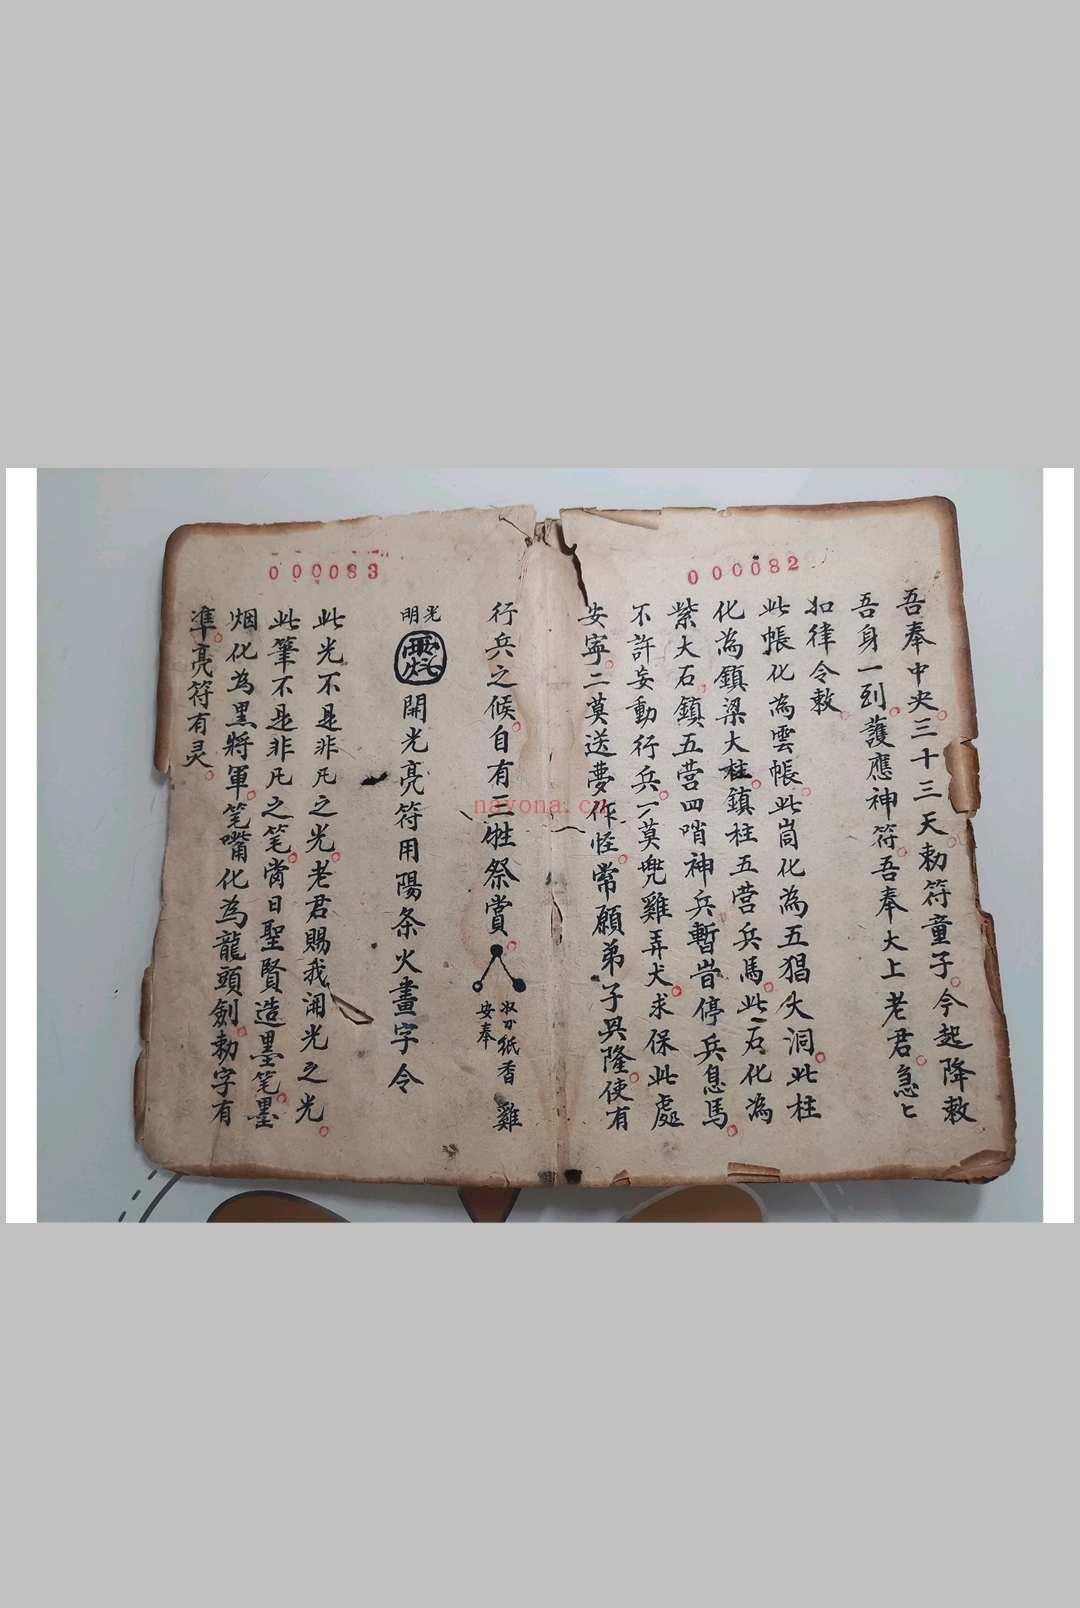 000082
吾奉中央三十三天勅符童子今起降敕
吾身一到護應神符吾奉大上老君急匕
如律令敕
此帳化為雲帳此崗化為五猖大洞此柱
化為鎮梁大柱鎮柱五营兵馬此一石化為
紫大石鎮五营四哨神兵暫旹停兵息馬
不許妄動行兵一莫兠雞弄犬求保此處
安寧二莫送夢作怪常願弟子興隆使有
000083
行兵之候自有三牲祭賞
刀紙香 雞
安奉
光明
開光亮符用陽条火畫字令
此光不是非凡之光老君賜我開光之光
此筆不是非凡之笔當日聖賢造墨笔墨
烟化為黑將軍笔嘴化為龍頭劍勅字有
準亮符有灵
nayona.cn